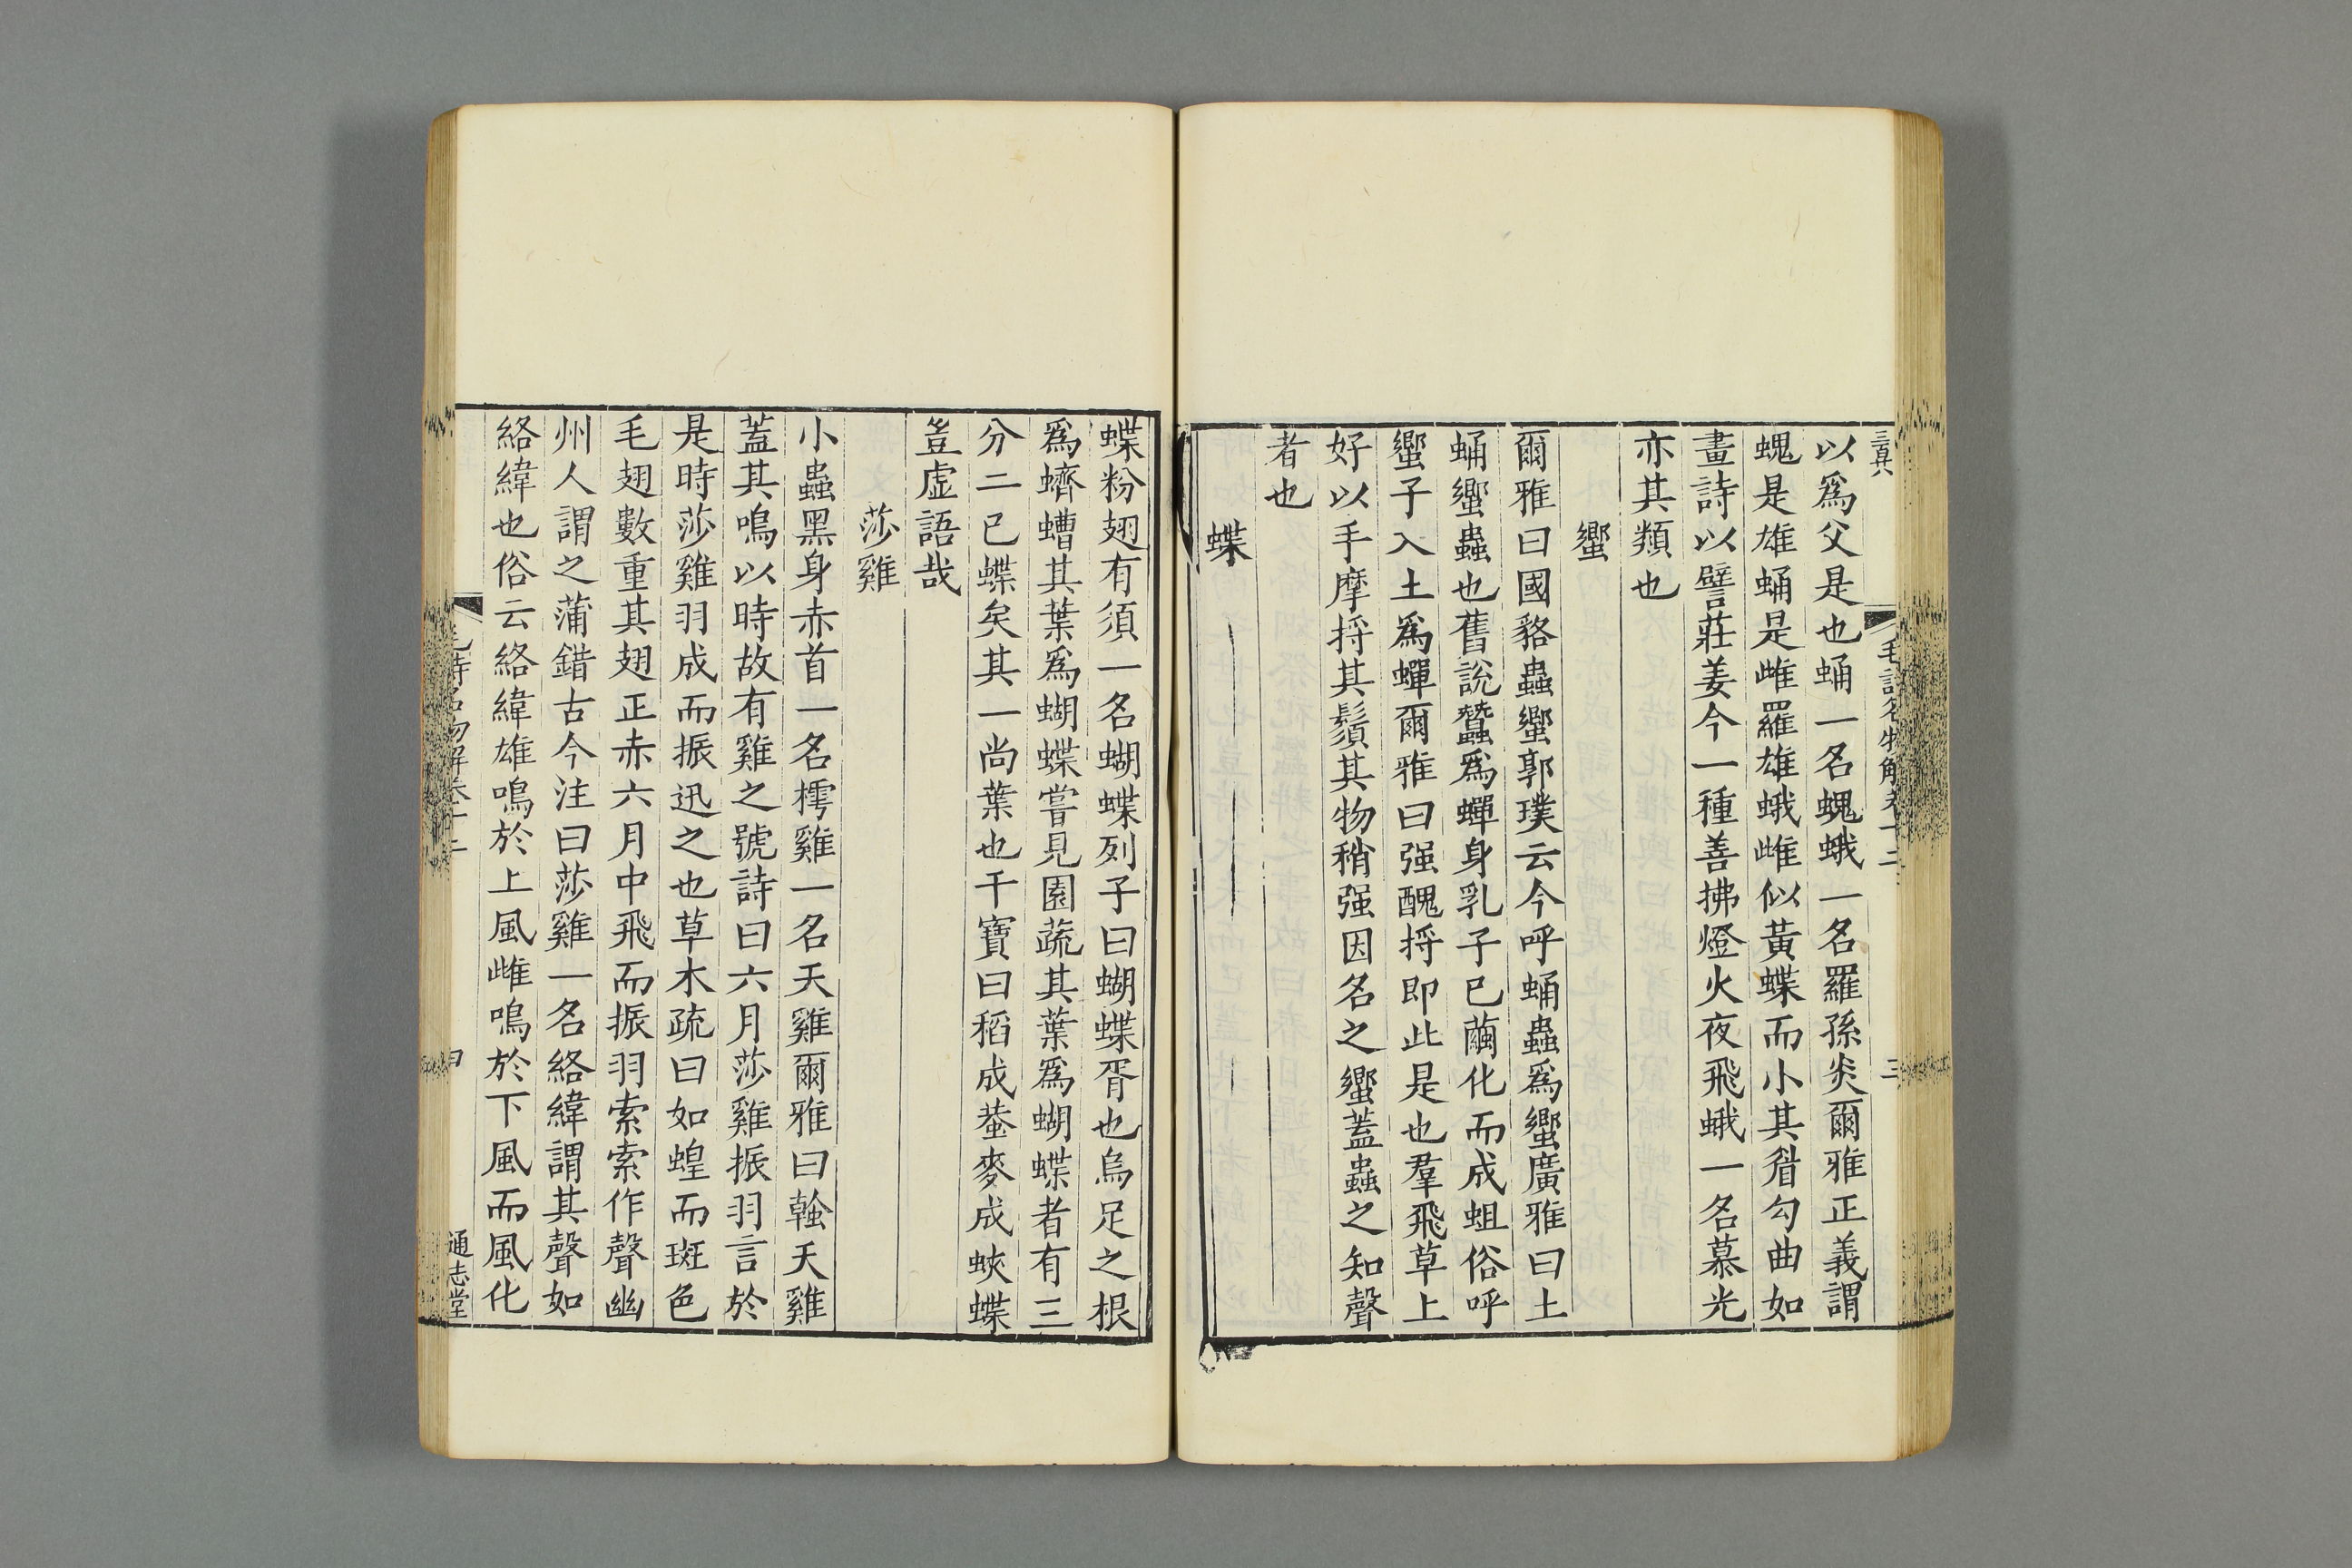 三百廿六
毛詩名物解卷十二
三
以爲父是也蛹一名螝蛾一名羅孫炎爾雅正義謂
螝是雄蛹是雌羅雄蛾雌似黃蝶而小其眉勾曲如
畫詩以譬莊姜今一種善拂燈火夜飛蛾一名慕光
亦其類也
蠁
爾雅曰國貉蟲蠁郭璞云今呼蛹蟲爲蠁廣雅曰土
蛹蠁蟲也舊說蠶爲蟬身乳子已繭化而成蛆俗呼
蠁子入土爲蟬爾雅曰强醜捋即此是也羣飛草上
好以手摩捋其鬚其物稍强因名之蠁蓋蟲之知聲
者也
蝶
蝶粉翅有須一名蝴蝶列子曰蝴蝶胥也烏足之根
爲蠐螬其葉爲蝴蝶嘗見園蔬其葉爲蝴蝶者有三
分二已蝶矣其一尚葉也干寶曰稻成蛬麥成蛺蝶
豈虛語哉
莎雞
小蟲黑身赤首一名樗雞一名天雞爾雅曰螒天雞
蓋其鳴以時故有雞之號詩曰六月莎雞振羽言於
是時莎雞羽成而振迅之也草木疏曰如蝗而斑色
毛翅數重其翅正赤六月中飛而振羽索索作聲幽
州人謂之蒲錯古今注曰莎雞一名絡緯謂其聲如
絡緯也俗云絡緯雄鳴於上風雌鳴於下風而風化
毛詩名物解卷十二
通志堂